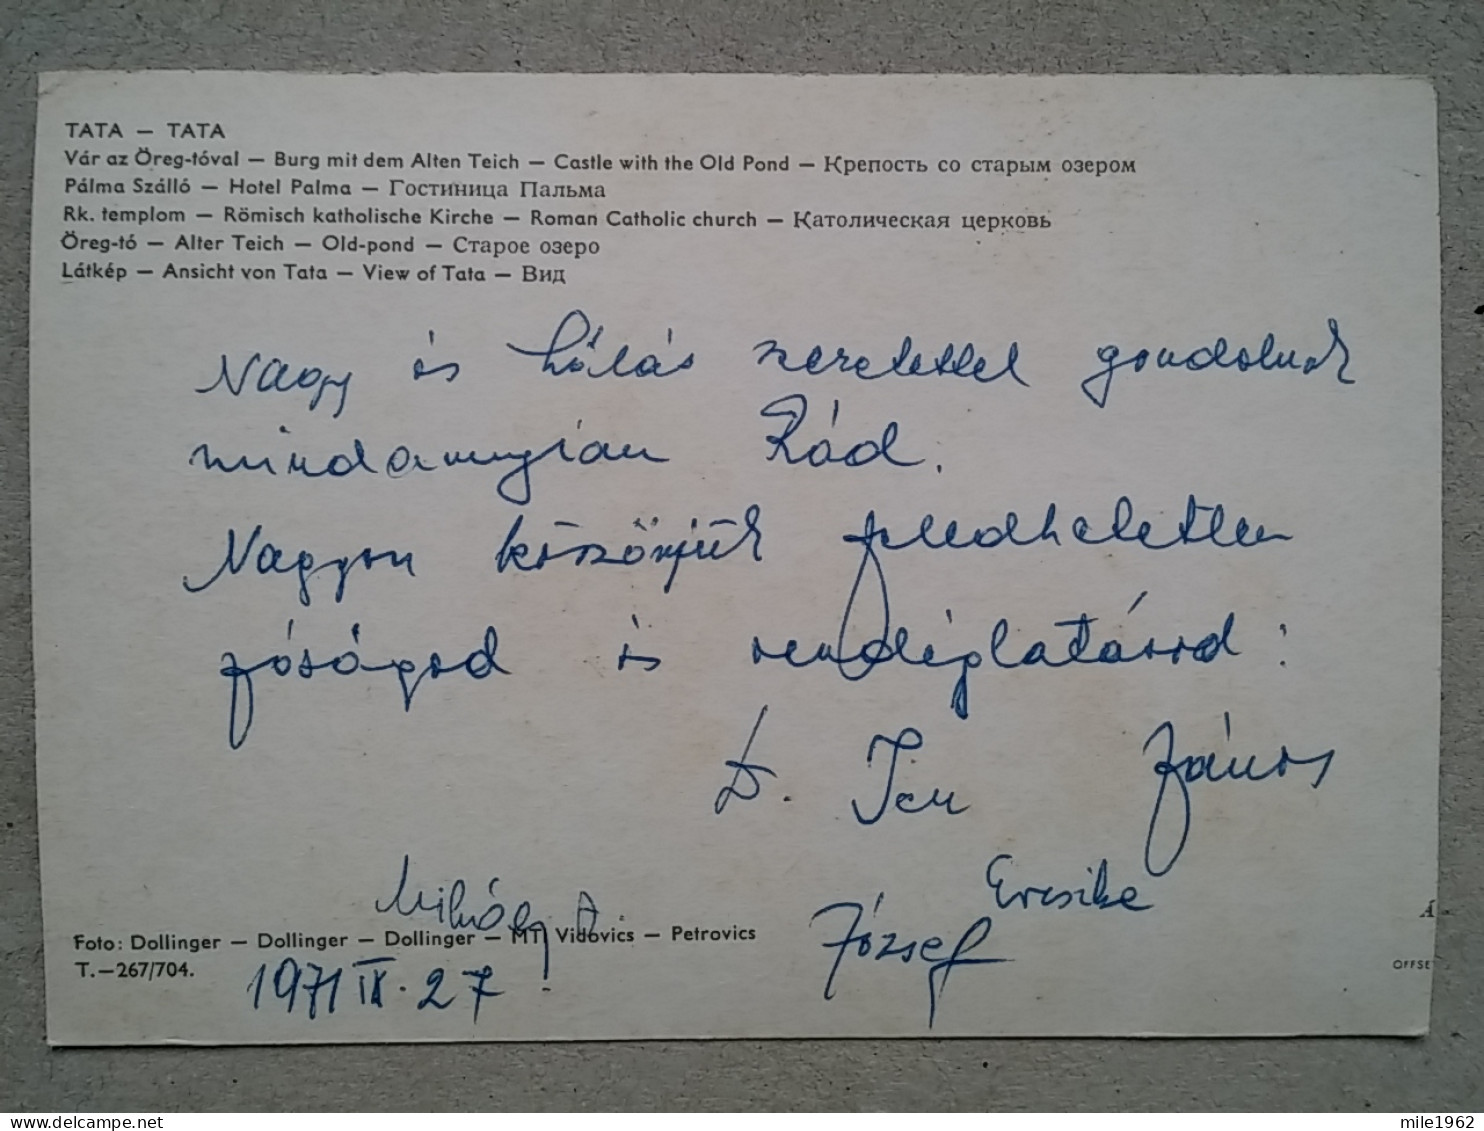 TATA — TATA
Vár az Öreg-tóval — Burg mit dem Alten Teich — Castle with the Old Pond — Крепость со старым озером
Pálma Szálló — Hotel Palma — Гостиница Пальма
Rk. templom — Römisch katholische Kirche — Roman Catholic church — Католическая церковь
Öreg-tó — Alter Teich — Old-pond — Старое озеро
Látkép — Ansicht von Tata — View of Tata — Вид
Nagy és hálás szeretettel gondolunk
mindannyian Rád.
Nagyon köszönjük feledhetetlen
jóságod és vendéglátásod :
János
Mihály
Ercsike
József
Foto: Dollinger — Dollinger — Dollinger — MTI Vidovics — Petrovics
T.—267/704.
1971 IX. 27
Á
OFFSE
mile1962